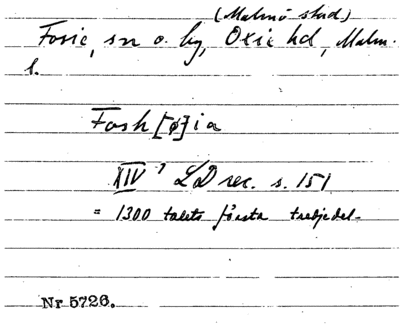 (Malmö stad)
Fosie, sn o. by, Oxie hd, Malm.
l.
Fosh[ø]ia
XIV¹ LD rec. s. 151
= 1300 talets första tredjedel.
Nr 5726.